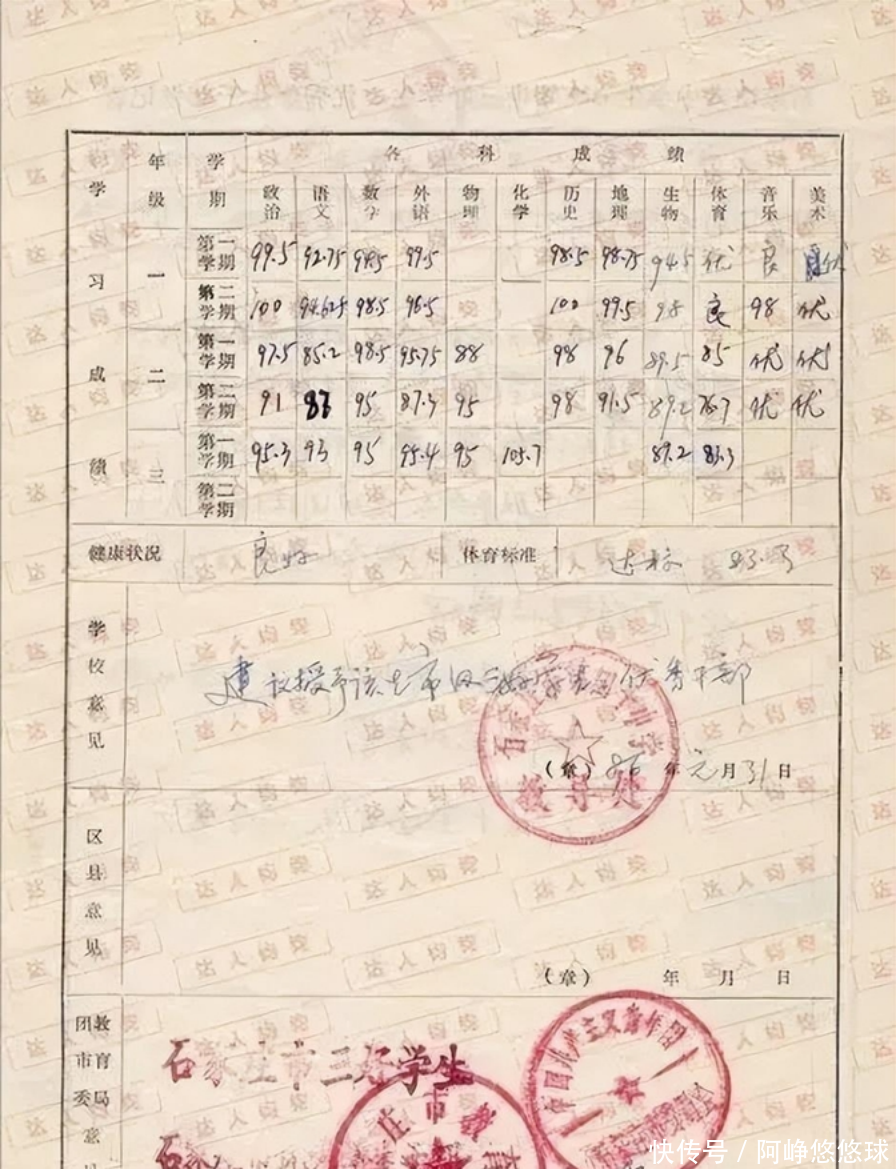 学习成绩 年级 学期 各科成绩
政治 语文 数学 外语 物理 化学 历史 地理 生物 体育 音乐 美术
一 第一学期 99.5 92.75 99.5 98.5 98.75 94.5 优 良 优
第二学期 100 94.625 98.5 96.5 100 99.5 98 良 98 优
二 第一学期 97.5 85.2 98.5 95.75 88 98 96 89.5 85 优 优
第二学期 91 95 87.3 95 98 91.5 89.2 76.7 优 优
三 第一学期 95.3 93 95 95.4 95 105.7 89.2 83.3
第二学期
健康状况 良好 体育标准 达标 83.3
学校意见
建议授予该生市级三好学生 优秀干部
石家庄 中学
教导处
(章) 86年元月31日
区县意见
(章) 年 月 日
团市委 教育局 意
石家庄市三好学生
石家
庄市教育
主义青年团
达人钧瓷
快传号/阿峥悠悠球